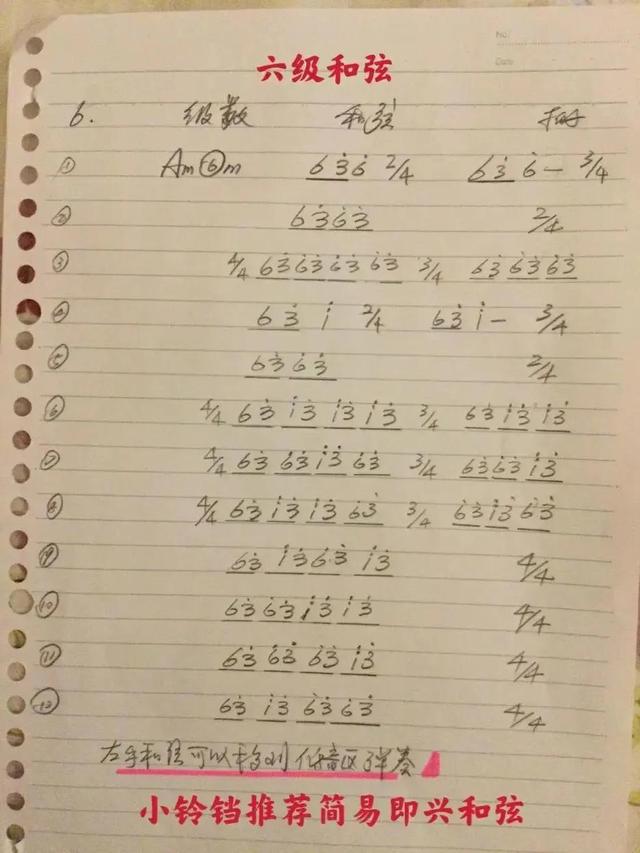 No:
Date:
六级和弦
6. 级数 和弦 拍
① Am⑥m 6 3̇ 6̇ 2/4 6 3̇ 6̇ — 3/4
② 6 3̇ 6̇ 3̇ 2/4
③ 4/4 6 3̇ 6̇ 3̇ 6̇ 3̇ 6̇ 3̇ 3/4 6 3̇ 6̇ 3̇ 6̇ 3̇
④ 6 3̇ i 2/4 6 3̇ i — 3/4
⑤ 6 3̇ 6̇ 3̇ 2/4
⑥ 4/4 6 3̇ i 3̇ i 3̇ i 3̇ 3/4 6 3̇ i 3̇ i 3̇
⑦ 4/4 6 3̇ 6̇ 3̇ i 3̇ 6̇ 3̇ 3/4 6 3̇ 6̇ 3̇ i 3̇
⑧ 4/4 6 3̇ i 3̇ i 3̇ 6 3̇ 3/4 6 3̇ i 3̇ 6̇ 3̇
⑨ 6 3̇ i 3̇ 6 3̇ i 3̇ 4/4
⑩ 6 3̇ 6 3̇ i 3̇ i 3̇ 4/4
⑪ 6 3̇ 6̇ 3̇ 6 3̇ i 3̇ 4/4
⑫ 6 3̇ i 3̇ 6̇ 3̇ 6̇ 3̇ 4/4
左手和弦可以移到低音区弹奏
小铃铛推荐简易即兴和弦